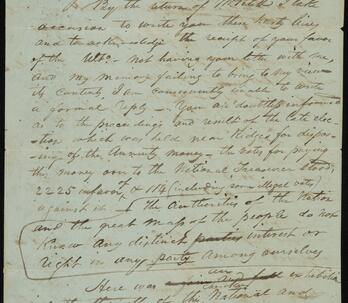 By the return of Mr. I take
occasion to write you these hasty lines,
and to acknowledge the receipt of your favor
of the Ulto. Not having your letter with me,
and my memory failing to bring to my view
its contents I am consequently unable to write
a formal reply – You are doubtless informed
as to the proceedings and result of the late elec-
tion which was held near Ridge's for dispos-
ing of the Annuity money – the votes for paying
the money over to the National Treasurer stood,
2225 in favor of & 114 (including some illegal votes)
against it – The Authorities of the Nation
and the great mass of the people do not
Know any distinct parties interest or
right in any party among ourselves
Here was an exhibition
of the National and